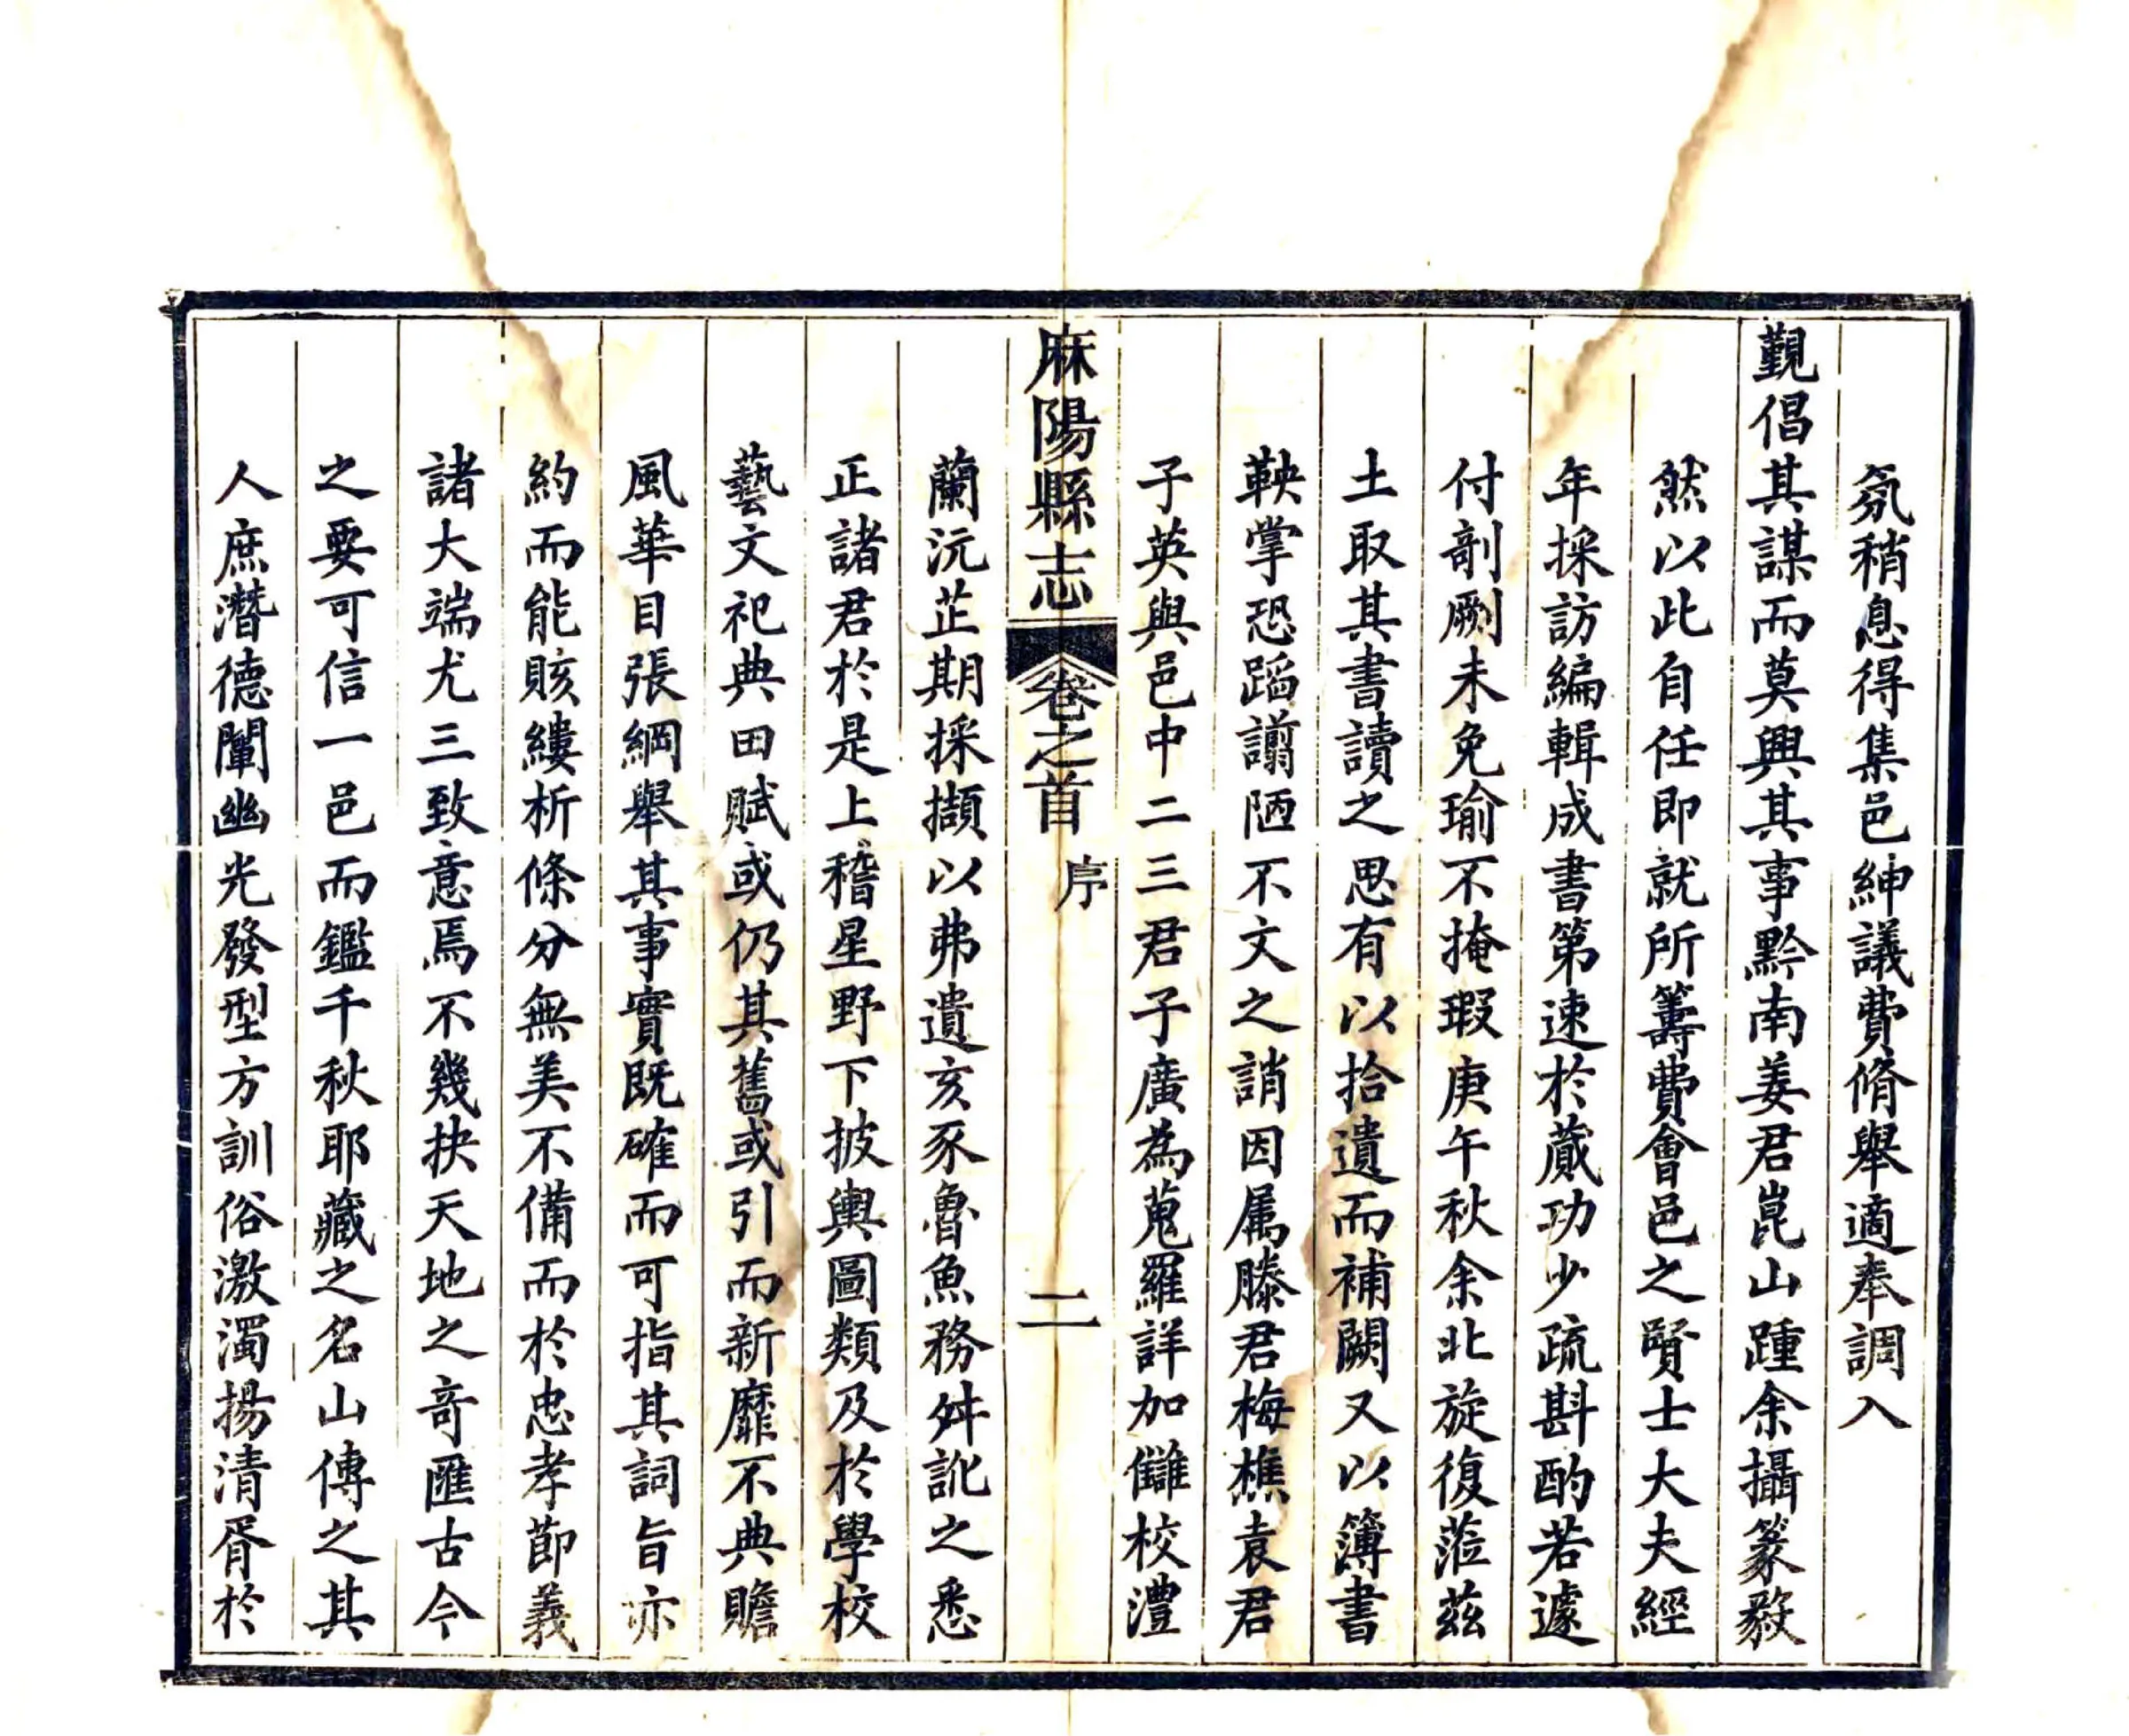 氛稍息得集邑紳議費脩舉適奉調入
覲倡其謀而莫興其事黔南姜君崑山踵余攝篆毅
然以此自任即就所籌費會邑之賢士大夫經
年採訪編輯成書第速於蕆功少疏斟酌若遽
付剞劂未免瑜不掩瑕庚午秋余北旋復蒞茲
土取其書讀之思有以拾遺而補闕又以簿書
鞅掌恐蹈譾陋不文之誚因属滕君梅樵袁君
子英與邑中二三君子廣為蒐羅詳加讎校澧
麻陽縣志 卷之首 序 二
蘭沅芷期採擷以弗遺亥豕魯魚務舛訛之悉
正諸君於是上稽星野下披輿圖類及於學校
藝文祀典田賦或仍其舊或引而新靡不典贍
風華目張綱舉其事實既確而可指其詞旨亦
約而能賅縷析條分無美不備而於忠孝節義
諸大端尤三致意焉不幾抉天地之奇匯古今
之要可信一邑而鑑千秋耶藏之名山傳之其
人庶潛德闡幽光發型方訓俗激濁揚清胥於